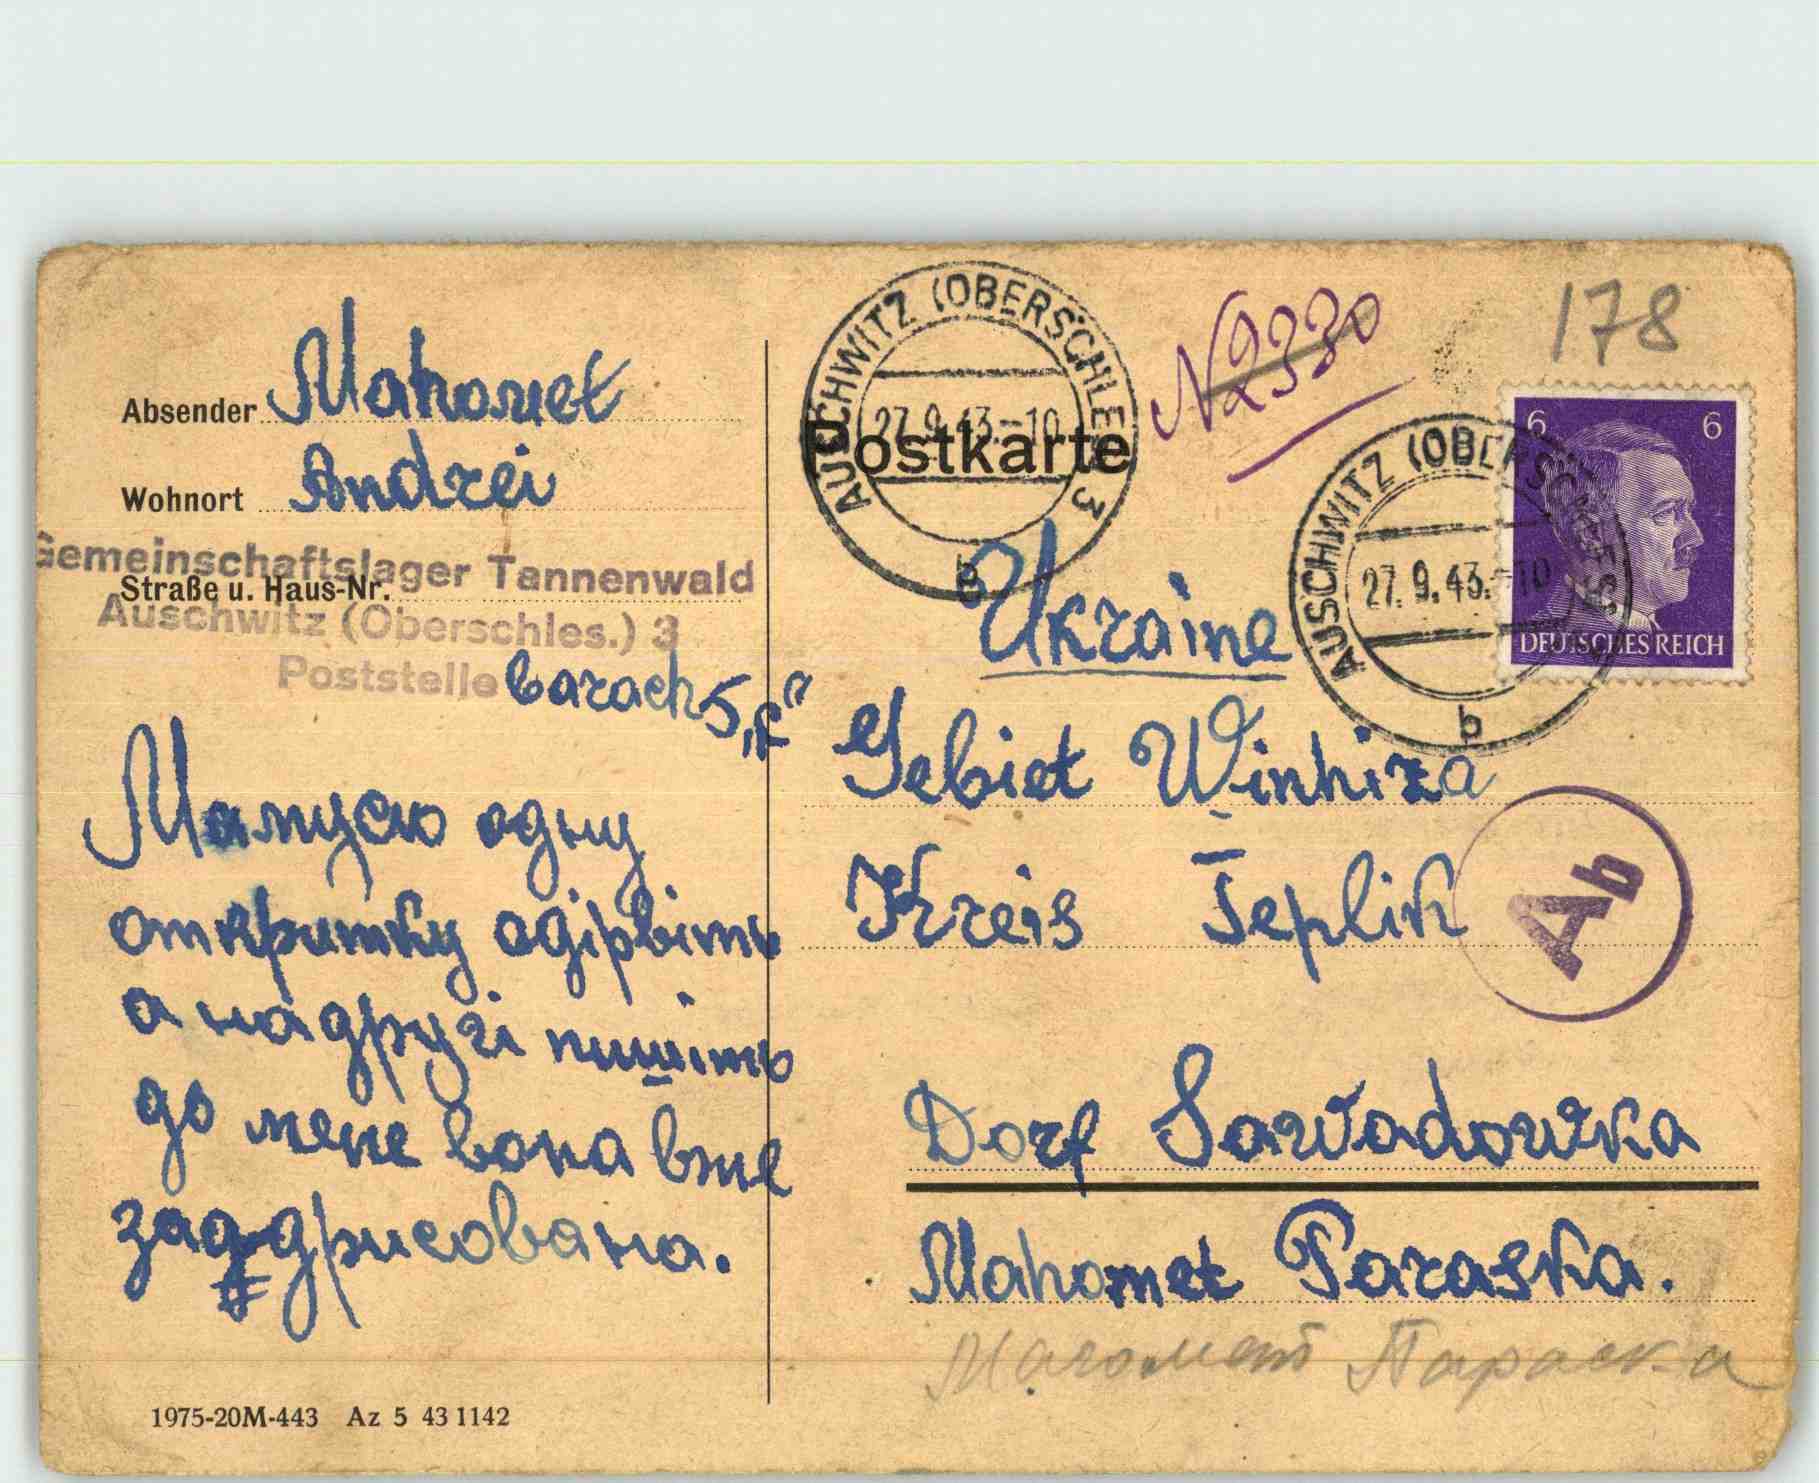 Absender Mahomet
Wohnort Andrei
Straße u. Haus-Nr.
Gemeinschaftslager Tannenwald
Auschwitz (Oberschles.) 3
Poststelle barach 5 „f“
Мамусю одну
откритку одірвіть
а на другі пишіть
до мене вона вже
задресована.
1975-20M-443 Az 5 43 1142
Postkarte
AUSCHWITZ (OBERSCHLES) 3
27.9.43.-10
b
N2330
178
6 6
DEUTSCHES REICH
AUSCHWITZ (OBERSCHLES)
27.9.43.-10
b
Ukraine
Gebiet Winniza
Kreis Teplik
Ab
Dorf Sawadowka
Mahomet Paraska.
Магомет Параска